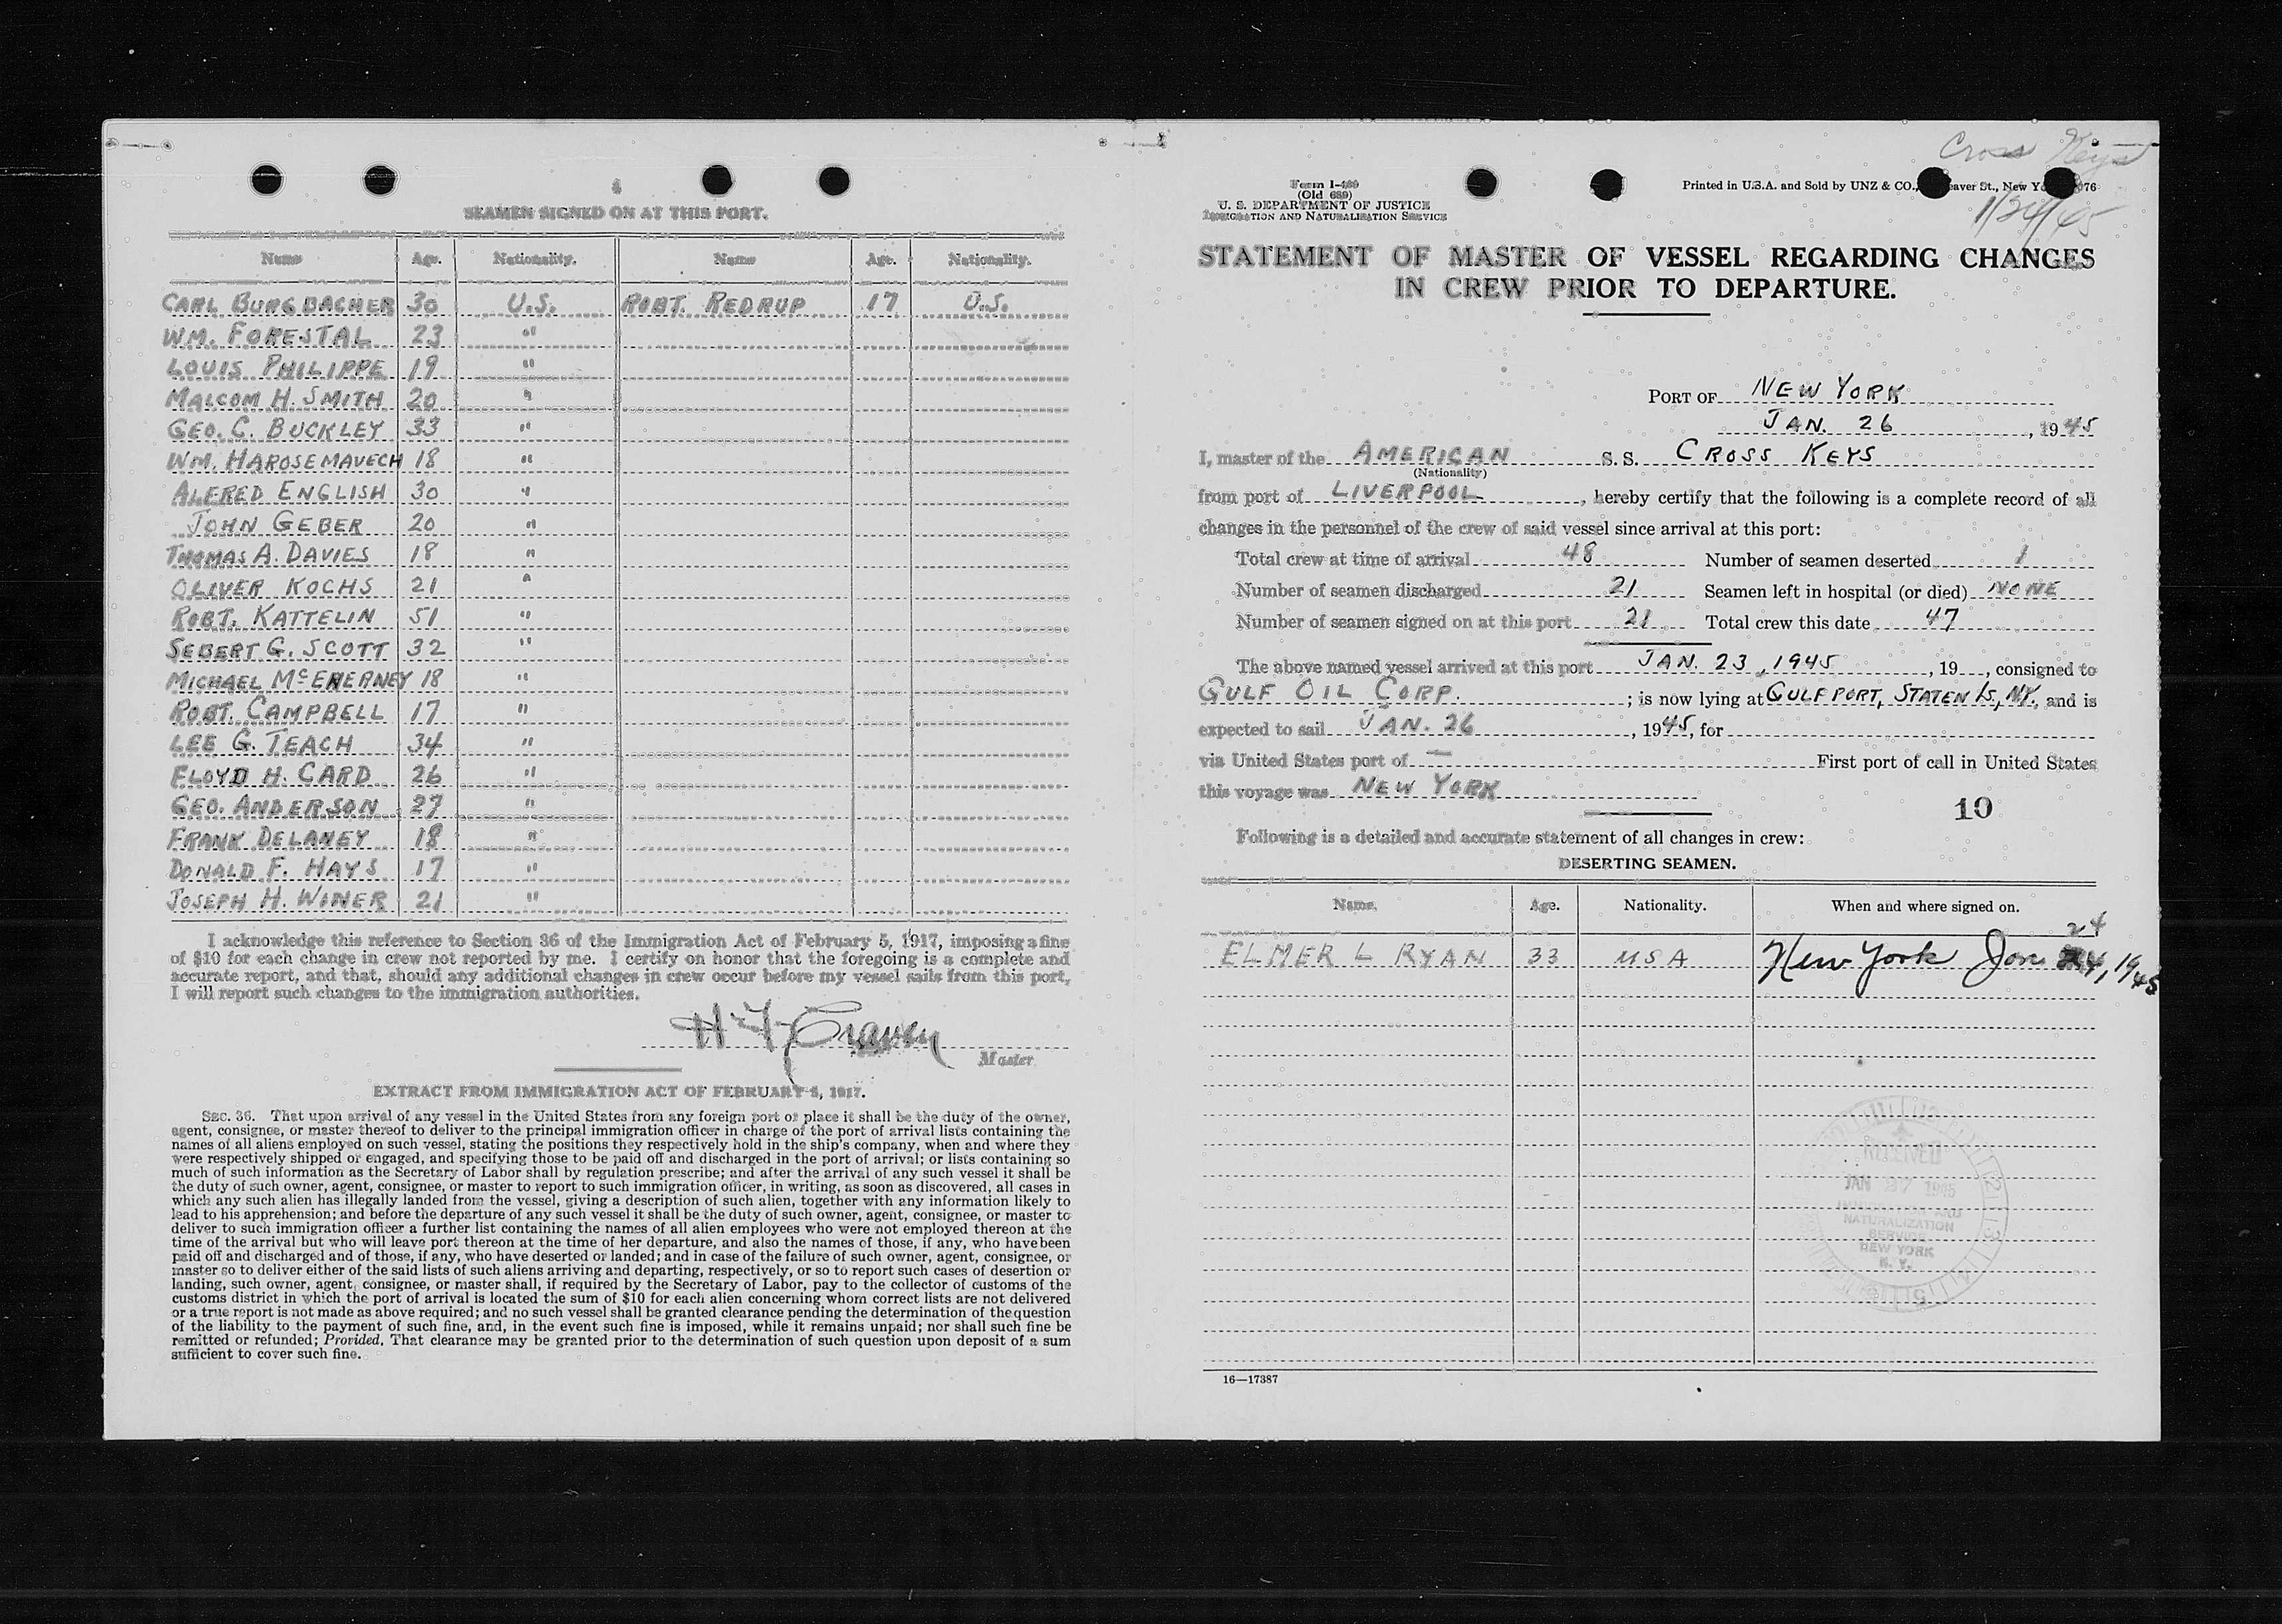 4
SEAMEN SIGNED ON AT THIS PORT.
Name Age. Nationality. Name Age. Nationality.
CARL BURGBACHER 30 U.S. ROBT. REDRUP 17 U.S.
WM. FORESTAL 23 "
LOUIS PHILIPPE 19 "
MALCOM H. SMITH 20 "
GEO. C. BUCKLEY 33 "
WM. HAROSEMAVECH 18 "
ALFRED ENGLISH 30 "
JOHN GEBER 20 "
THOMAS A. DAVIES 18 "
OLIVER KOCHS 21 "
ROBT. KATTELIN 51 "
SEBERT G. SCOTT 32 "
MICHAEL McENERNEY 18 "
ROBT. CAMPBELL 17 "
LEE G. TEACH 34 "
FLOYD H. CARD 26 "
GEO. ANDERSON 27 "
FRANK DELANEY 18 "
DONALD F. HAYS 17 "
JOSEPH H. WINER 21 "
I acknowledge this reference to Section 36 of the Immigration Act of February 5, 1917, imposing a fine
of $10 for each change in crew not reported by me. I certify on honor that the foregoing is a complete and
accurate report, and that, should any additional changes in crew occur before my vessel sails from this port,
I will report such changes to the immigration authorities.
Master
EXTRACT FROM IMMIGRATION ACT OF FEBRUARY 5, 1917.
SEC. 36. That upon arrival of any vessel in the United States from any foreign port or place it shall be the duty of the owner,
agent, consignee, or master thereof to deliver to the principal immigration officer in charge of the port of arrival lists containing the
names of all aliens employed on such vessel, stating the positions they respectively hold in the ship's company, when and where they
were respectively shipped or engaged, and specifying those to be paid off and discharged in the port of arrival; or lists containing so
much of such information as the Secretary of Labor shall by regulation prescribe; and after the arrival of any such vessel it shall be
the duty of such owner, agent, consignee, or master to report to such immigration officer, in writing, as soon as discovered, all cases in
which any such alien has illegally landed from the vessel, giving a description of such alien, together with any information likely to
lead to his apprehension; and before the departure of any such vessel it shall be the duty of such owner, agent, consignee, or master to
deliver to such immigration officer a further list containing the names of all alien employees who were not employed thereon at the
time of the arrival but who will leave port thereon at the time of her departure, and also the names of those, if any, who have been
paid off and discharged and of those, if any, who have deserted or landed; and in case of the failure of such owner, agent, consignee, or
master so to deliver either of the said lists of such aliens arriving and departing, respectively, or so to report such cases of desertion or
landing, such owner, agent, consignee, or master shall, if required by the Secretary of Labor, pay to the collector of customs of the
customs district in which the port of arrival is located the sum of $10 for each alien concerning whom correct lists are not delivered
or a true report is not made as above required; and no such vessel shall be granted clearance pending the determination of the question
of the liability to the payment of such fine, and, in the event such fine is imposed, while it remains unpaid; nor shall such fine be
remitted or refunded; Provided, That clearance may be granted prior to the determination of such question upon deposit of a sum
sufficient to cover such fine.
Cross Keys
1/24/45
Form I-489
(Old 689)
U. S. DEPARTMENT OF JUSTICE
IMMIGRATION AND NATURALIZATION SERVICE
Printed in U.S.A. and Sold by UNZ & CO., eaver St., New Yo 076
STATEMENT OF MASTER OF VESSEL REGARDING CHANGES
IN CREW PRIOR TO DEPARTURE.
PORT OF NEW YORK
JAN. 26, 1945
I, master of the AMERICAN S. S. CROSS KEYS
(Nationality)
from port of LIVERPOOL, hereby certify that the following is a complete record of all
changes in the personnel of the crew of said vessel since arrival at this port:
Total crew at time of arrival 48 Number of seamen deserted 1
Number of seamen discharged 21 Seamen left in hospital (or died) NONE
Number of seamen signed on at this port 21 Total crew this date 47
The above named vessel arrived at this port JAN. 23, 1945, 19 , consigned to
GULF OIL CORP.; is now lying at GULFPORT, STATEN IS, NY. and is
expected to sail JAN. 26, 1945, for
via United States port of — First port of call in United States
this voyage was NEW YORK
10
Following is a detailed and accurate statement of all changes in crew:
DESERTING SEAMEN.
Name. Age. Nationality. When and where signed on.
24
ELMER L RYAN 33 USA New York Jan 24, 1945
RECEIVED
JAN 27 1945
IMMIGRATION AND
NATURALIZATION
SERVICE
NEW YORK
N. Y.
16—17387